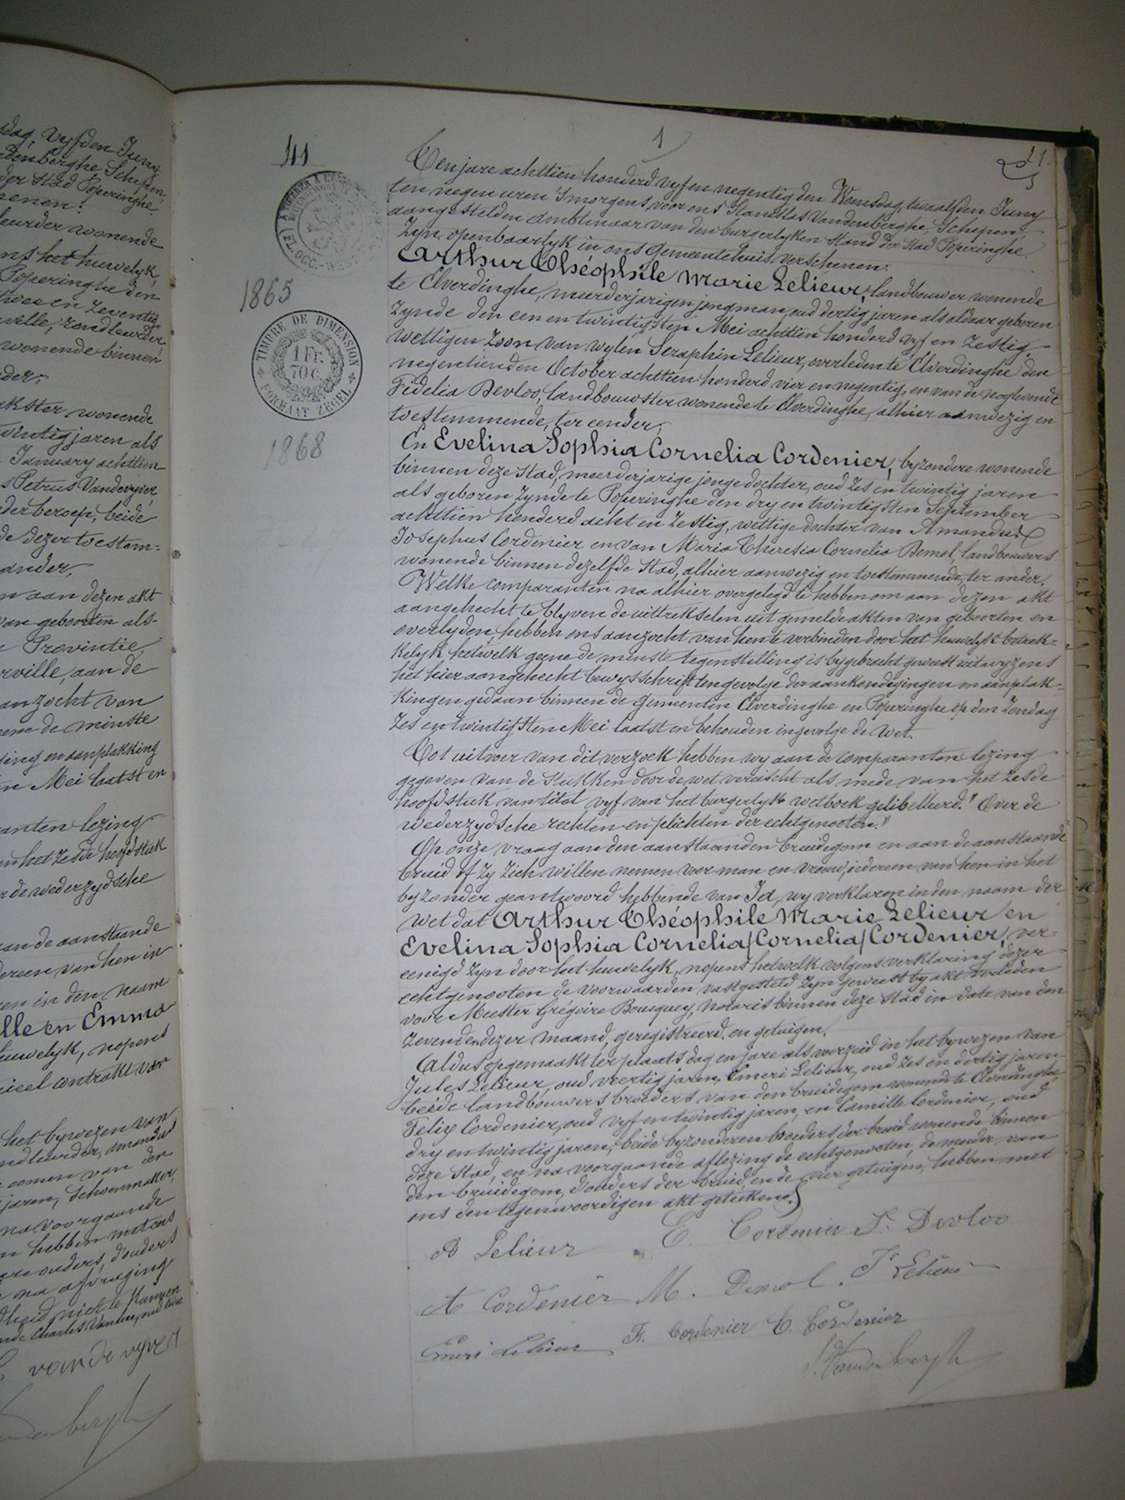 dag, vyfden Juny
denberghe Schepen,
der Stad Poperinghe
enen:
leurder wonende
ns het huwelyk,
Poperinghe den
hes en zeventig
ville, landleurder
wonende binnen
der,
akster, wonende
wintig jaren als
January achttien
s Petrus Vanderyver,
der beroep, beide
de dezer toestem-
ander,
n aan dezen akt
van geboorten als-
Provintie,
rville, aan de
anzocht van
eene de minste
ing en aanplakking
n Mei laatst en
anten lezing
an het zesde hoofdstuk
r de wederzydsche
aan de aanstaande
dereen van hen in
en in den naam
lle en Emma
huwelyk, nopens
cieel contrakt voor
het bywezen van
jaren, Schoenmaker,
na voorgaande
n hebben met ons
ouders, d'ouders
na afvraging
van de vyver
denbergh
41
1
41.
1865
TIMBRE DE DIMENSION
1 Fr.
70 C.
FORMAAT ZEGEL
1868
Ten jare achttien honderd vyf en negentig den Woensdag, twaalfden Juny
ten negen uren 's morgens, voor ons Stanislas Vandenberghe Schepen,
aangestelden Ambtenaar van den burgerlyken Stand der Stad Poperinghe
Zyn openbaarlyk in ons gemeentehuis verschenen:
Arthur Théophile Marie Lelieur, landbouwer wonende
te Elverdinghe, meerderjarigen jongman, oud dertig jaren als aldaar geboren
zynde den een en twintigsten Mei achttien honderd vyf en zestig
wettigen zoon van wylen Seraphin Lelieur, overleden te Elverdinghe den
negentienden October achttien honderd vier en negentig, en van de noglevende
Fidelia Devloo, landbouwster wonende te Elverdinghe, alhier aanwezig en
toestemmende, ter eender,
En Evelina Sophia Cornelia Cordenier, byzondere wonende
binnen deze Stad, meerderjarige jonge dochter, oud zes en twintig jaren
als geboren zynde te Poperinghe den dry en twintigsten September
achttien honderd acht en zestig, wettige dochter van Amandus
Josephus Cordenier en van Maria Theresia Cornelia Demol, landbouwers
wonende binnen dezelfde Stad, alhier aanwezig en toestemmende, ter ander,
Welke comparanten na alhier overgelegd te hebben om aan dezen akt
aangehecht te blyven de uittrekselen uit gemelde akten van geboorten en
overlyden, hebben ons aanzocht van hen te verbinden door het huwelyk betrek-
kelyk hetwelk geene de minste tegenstelling is bygebracht geweest uitwyzens
het hier aangehecht bewysschrift tengevolge der aankondigingen en aanplak-
kingen gedaan binnen de gemeenten Elverdinghe en Poperinghe op den Zondag
zes en twintigsten Mei laatst en behouden ingevolge de wet.
Tot uitvoer van dit verzoek hebben wy aan de comparanten lezing
gegeven van de stukken door de wet vereischt als mede van het zesde
hoofdstuk van titel vyf van het burgerlyk wetboek gelibelleerd: "Over de
wederzydsche rechten en plichten der echtgenooten."
Op onze vraag aan den aanstaanden bruidegom en aan de aanstaande
bruid of zy zich willen nemen voor man en vrouw, iedereen van hen in het
byzonder geantwoord hebbende van Ja, wy verklaren in den naam der
wet dat Arthur Théophile Marie Lelieur en
Evelina Sophia Cornelia/Cornelia/Cordenier, ver-
eenigd zyn door het huwelyk, nopens hetwelk volgens verklaring dezer
echtgenooten de voorwaarden vastgesteld zyn geweest by akt verleden
voor Meester Grégoire Bouquey, notaris binnen deze Stad in date van den
zevenden dezer maand, geregistreerd, en getuigen.
Aldus opgemaakt ter plaats dag en jare als voorzeid in het bywezen van
Jules Lelieur, oud veertig jaren, Emeri Lelieur, oud zes en dertig jaren
beide landbouwers broeders van den bruidegom wonende te Elverdinghe,
Felix Cordenier, oud vyf en twintig jaren, en Camille Cordenier, oud
dry en twintig jaren, beide byzonderen broeders der bruid wonende binnen
deze Stad, en na voorgaande aflezing de echtgenooten, de moeder van
den bruidegom, d'ouders der bruid, en de vier getuigen, hebben met
ons den tegenwoordigen akt geteekend.
A Lelieur E. Cordenier F. Devloo
A Cordenier M. Demol. J Lelieur
Emeri Lelieur F. Cordenier C. Cordenier
S. Vandenbergh